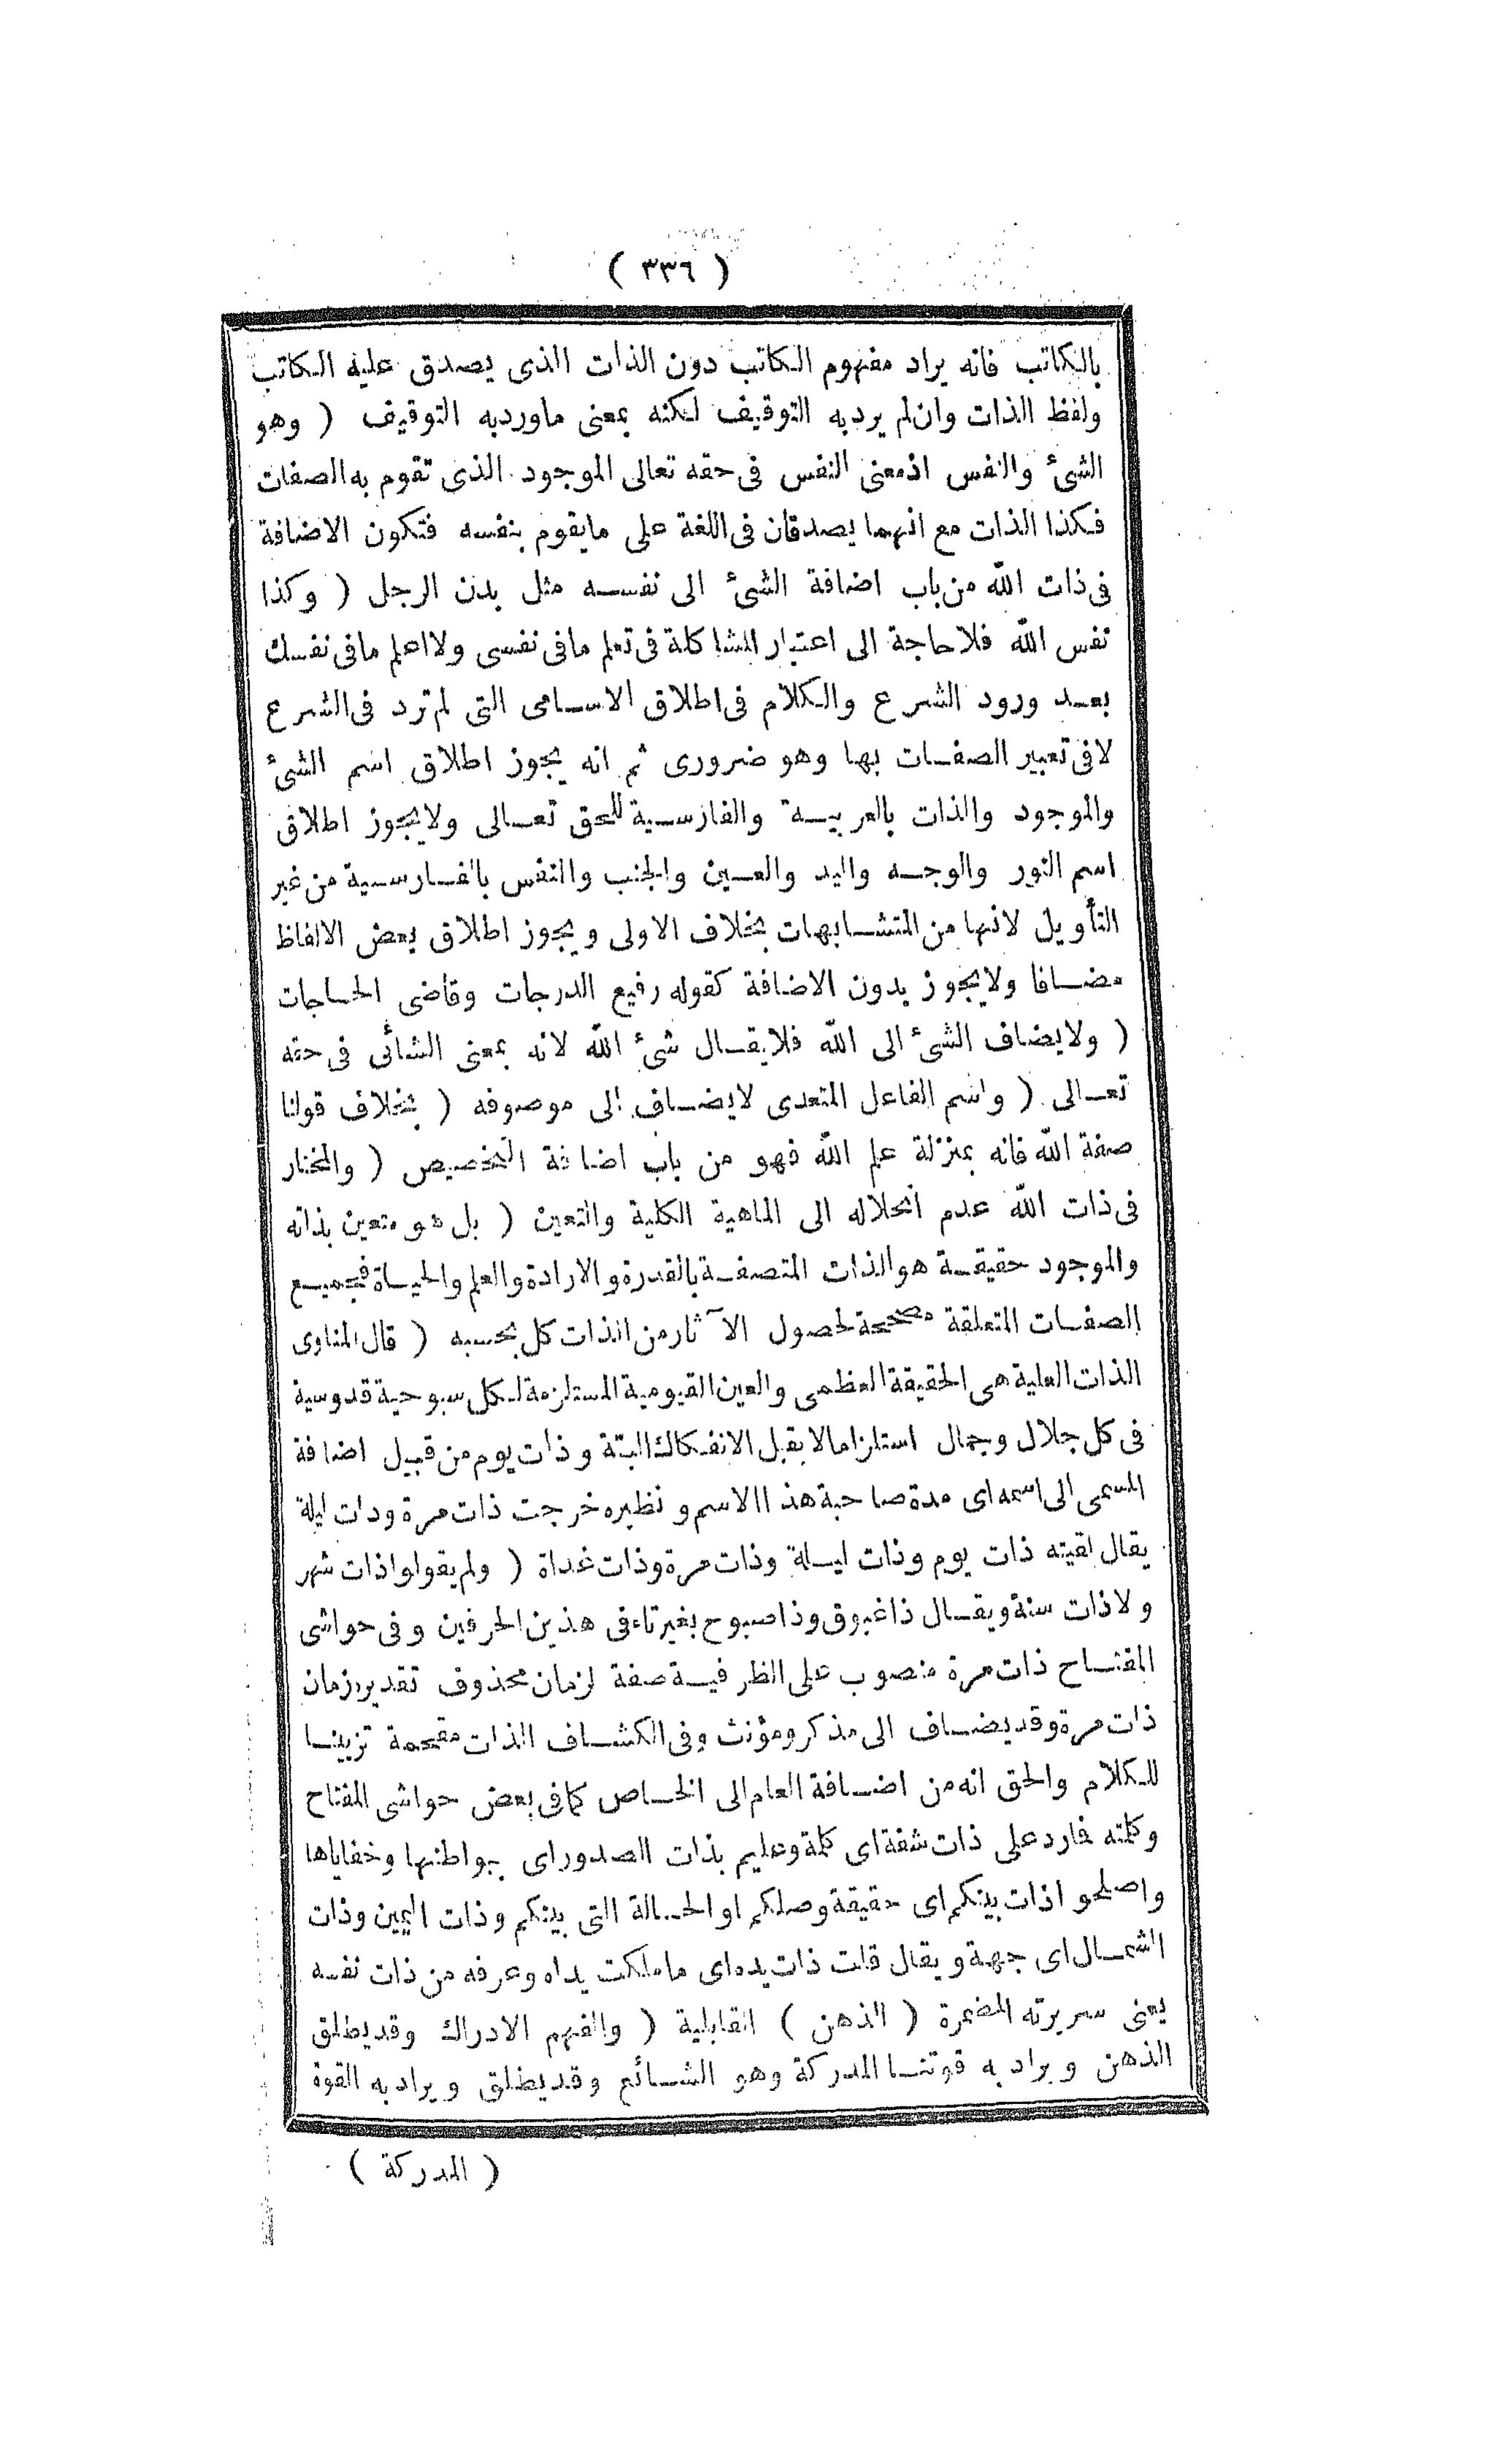 ( ٣٣٦ )
بالكاتب فانه يراد مفهوم الكاتب دون الذات الذى يصدق عليه الكاتب
ولفظ الذات وان لم يرد به التوقيف لكنه بمعنى ماورد به التوقيف ( وهو
الشئ والنفس اذمعنى النفس فى حقه تعالى الموجود الذى تقوم به الصفات
فكذا الذات مع انهما يصدقان فى اللغة على مايقوم بنفسه فتكون الاضافة
فى ذات الله من باب اضافة الشئ الى نفسه مثل بدن الرجل ( وكذا
نفس الله فلا حاجة الى اعتبار المشاكلة فى تعلم مافى نفسى ولا اعلم مافى نفسك
بعد ورود الشرع والكلام فى اطلاق الاسامى التى لم ترد فى الشرع
لافى تعبير الصفات بها وهو ضرورى ثم انه يجوز اطلاق اسم الشئ
والموجود والذات بالعربية والفارسية للحق تعالى ولايجوز اطلاق
اسم النور والوجه واليد والعين والجنب والنفس بالفارسية من غير
التأويل لانها من المتشابهات بخلاف الاولى ويجوز اطلاق بعض الالفاظ
مضافا ولايجوز بدون الاضافة كقوله رفيع الدرجات وقاضى الحاجات
( ولايضاف الشئ الى الله فلايقال شئ الله لانه بمعنى الشائى فى حقه
تعالى ( واسم الفاعل المتعدى لايضاف الى موصوفه ( بخلاف قولنا
صفة الله فانه بمنزلة علم الله فهو من باب اضافة التخصيص ( والمختار
فى ذات الله عدم انحلاله الى الماهية الكلية والتعين ( بل هو متعين بذاته
والموجود حقيقة هو الذات المتصفة بالقدرة والارادة والعلم والحياة فجميع
الصفات المتعلقة مصححة لحصول الآثار من الذات كل بحسبه ( قال المناوى
الذات العلية هى الحقيقة العظمى والعين القيومية المستلزمة لكل سبوحية قدوسية
فى كل جلال وجمال استلزاما لا يقبل الانفكاك البتة وذات يوم من قبيل اضافة
المسمى الى اسمه اى مدة صاحبة هذا الاسم ونظيره خرجت ذات مرة وذات ليلة
يقال لقيته ذات يوم وذات ليلة وذات مرة وذات غداة ( ولم يقولوا ذات شهر
ولا ذات سنة ويقال ذا غبوق وذا صبوح بغير تاء فى هذين الحرفين وفى حواشى
المفتاح ذات مرة منصوب على الظرفية صفة لزمان محذوف تقديره زمان
ذات مرة وقد يضاف الى مذكر ومؤنث وفى الكشاف الذات مقحمة تزيينا
للكلام والحق انه من اضافة العام الى الخاص كما فى بعض حواشى المفتاح
وكلته فارد على ذات شفة اى كلة وعليم بذات الصدور اى ببواطنها وخفاياها
واصلحوا ذات بينكم اى حقيقة وصلكم او الحالة التى بينكم وذات اليمين وذات
الشمال اى جهة ويقال قلت ذات يده اى ما ملكت يداه وعرفه من ذات نفسه
يعنى سريرته المضمرة ( الذهن ) القابلية ( والفهم الادراك وقد يطلق
الذهن ويراد به قوتنا المدركة وهو الشائع وقد يطلق ويراد به القوة
( المدركة )